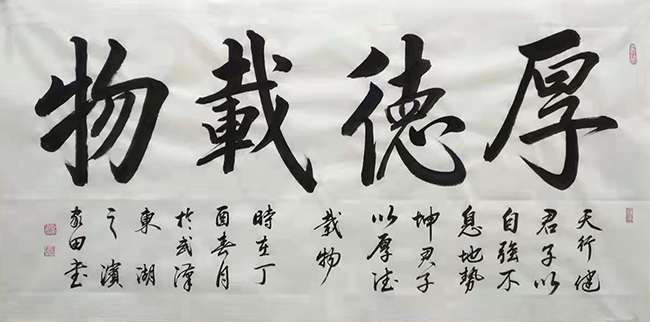 厚德載物
天行健
君子以
自強不
息地勢
坤君子
以厚德
載物
時在丁
酉春月
於武漢
東湖
之濱
家田書